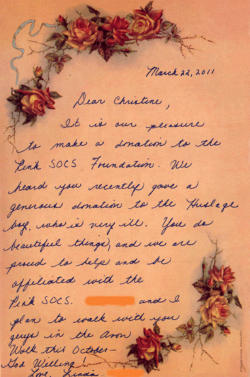 March 22, 2011
Dear Christine,
It is our pleasure
to make a donation to the
Pink SOCS Foundation. We
heard you recently gave a
generous donation to the
boy, who is very ill. You do
beautiful things, and we are
proud to help and be
affiliated with the
Pink SOCS. and I
plan to work with you
guys in the Avon
Walk this October—
God Willing!
Love, Linda